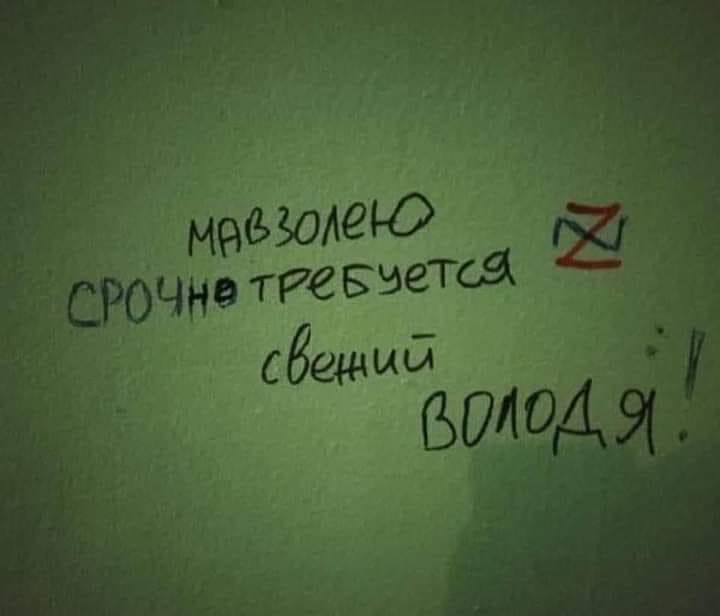 МАВЗОЛЕЮ
СРОЧНО ТРЕБУЕТСЯ Z
свежий
ВОЛОДЯ!